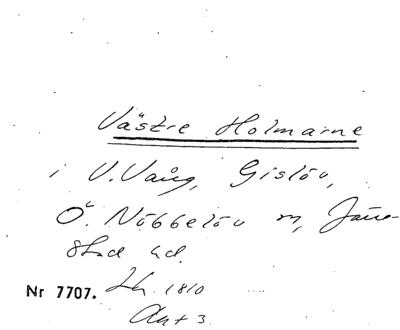 Västre Holmarne
i V. Vång, Gislöv,
Ö. Nöbbelöv m, Järre-
stad hd.
Nr 7707. Lh. 1810
Akt 3